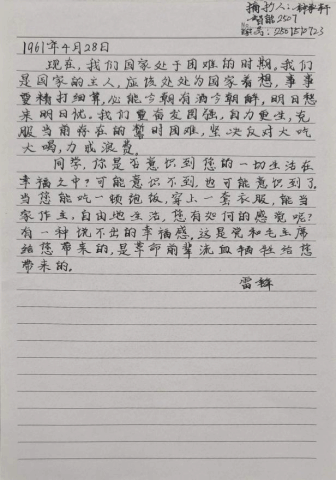 摘抄人:
智能2507
1961年4月28日
现在,我们国家处于困难的时期,我们
是国家的主人,应该处处为国家着想,事事
要精打细算,必能今朝有酒今朝醉,明日愁
来明日忧。我们要奋发图强,自力更生,克
服当前存在的暂时困难,坚决反对大吃
大喝,力戒浪费。
同学,你是否意识到您的一切生活在
幸福之中?可能意识不到,也可能意识到了,
当您能吃一顿饱饭,穿上一套衣服,能当
家作主,自由地生活,您有如何的感觉呢?
有一种说不出的幸福感,这是党和毛主席
给您带来的,是革命前辈流血牺牲给您
带来的。
雷锋